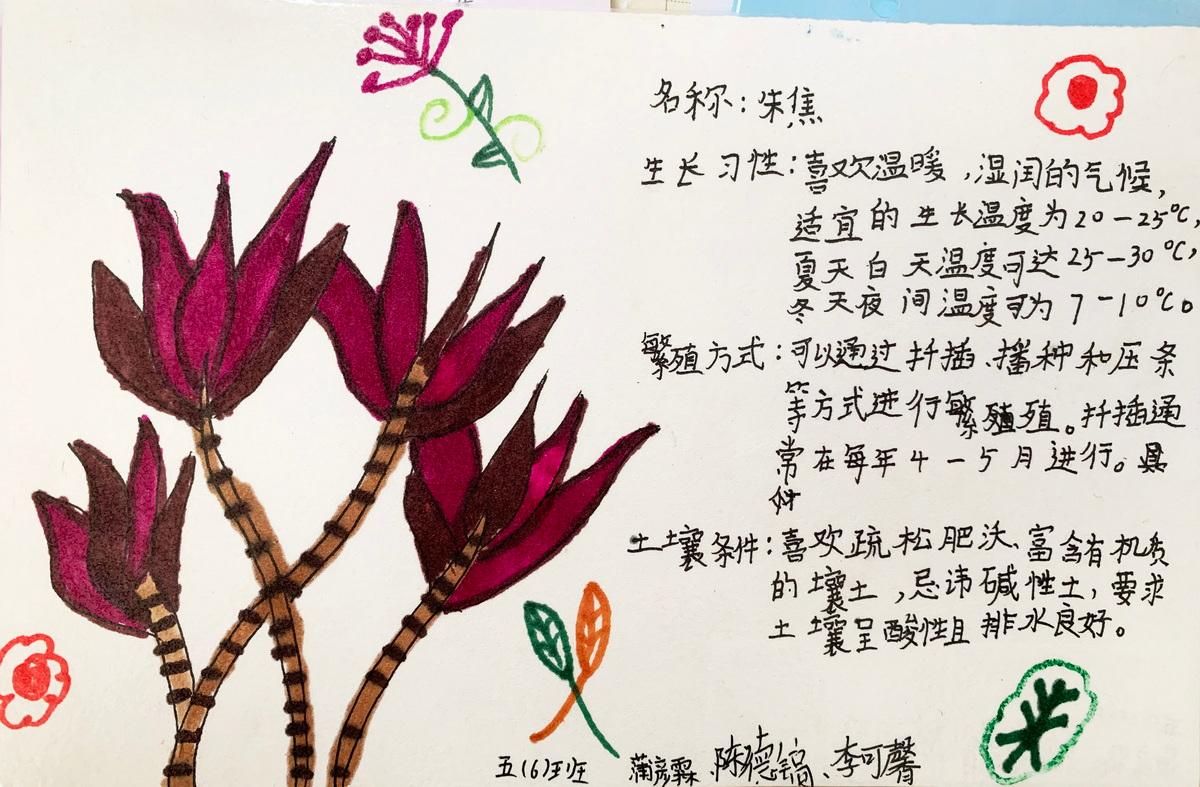 名称：朱焦
生长习性：喜欢温暖，湿润的气候，
适宜的生长温度为20-25℃，
夏天白天温度可达25-30℃，
冬天夜间温度可为7-10℃。
繁殖方式：可以通过扦插、播种和压条
等方式进行繁殖殖。扦插通
常在每年4-5月进行。
土壤条件：喜欢疏松肥沃、富含有机质
的壤土，忌讳碱性土，要求
土壤呈酸性且排水良好。
五（6）班 蒲彦霖、陈德镐、李可馨